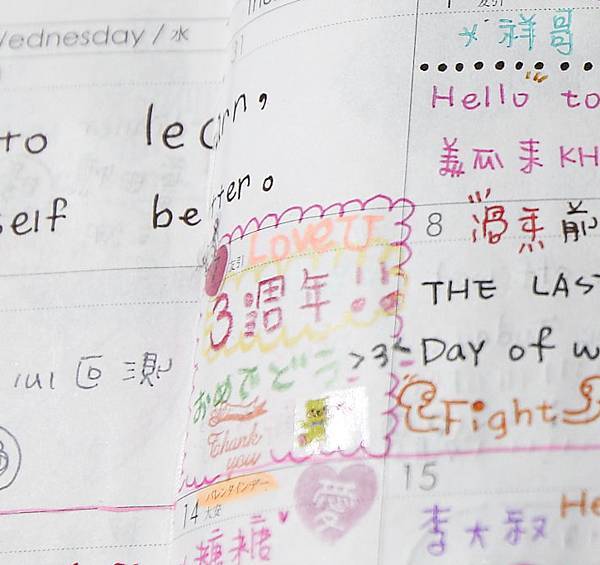 Wednesday / 水
31
友引
祥哥
to learn,
Hello to
self better。
美瓜来KH
8
Love U
友引
3週年!!
THE LAS
おめでどう >3<
Day of w
回測
Fight
Thank
you
15
バレンタインデー
14
大安
愛
He
糖糖
李大叔